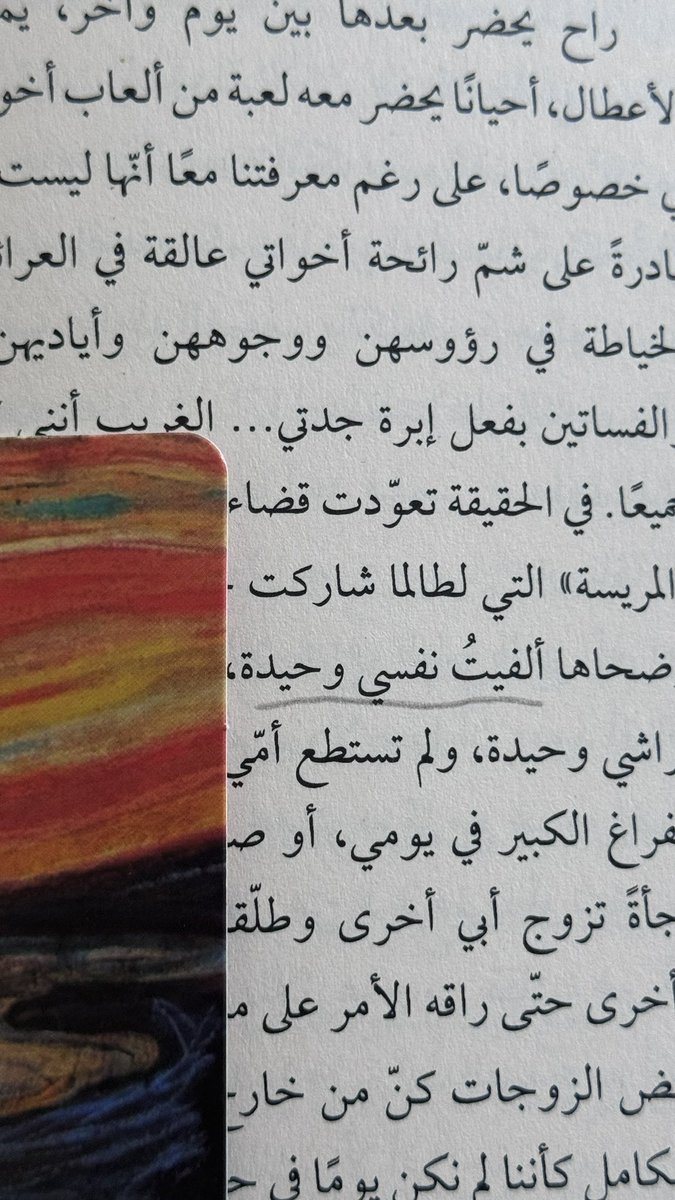 راح يحضر بعدها بين يوم وآخر،
الأعطال، أحيانًا يحضر معه لعبة من ألعاب
خصوصًا، على رغم معرفتنا معًا أنّها ليست
على شمّ رائحة أخواتي عالقة في
في رؤوسهن ووجوههن وأياديهن
الفساتين بفعل إبرة جدتي... الغريب أنني
في الحقيقة تعوّدت قضاء
المريسة» التي لطالما شاركت
ألفيتُ نفسي وحيدة،
وحيدة، ولم تستطع أمّي
الكبير في يومي، أو
تزوج أبي أخرى
أخرى حتّى راقه الأمر على
الزوجات كنّ من
كأننا لم نكن يومًا في